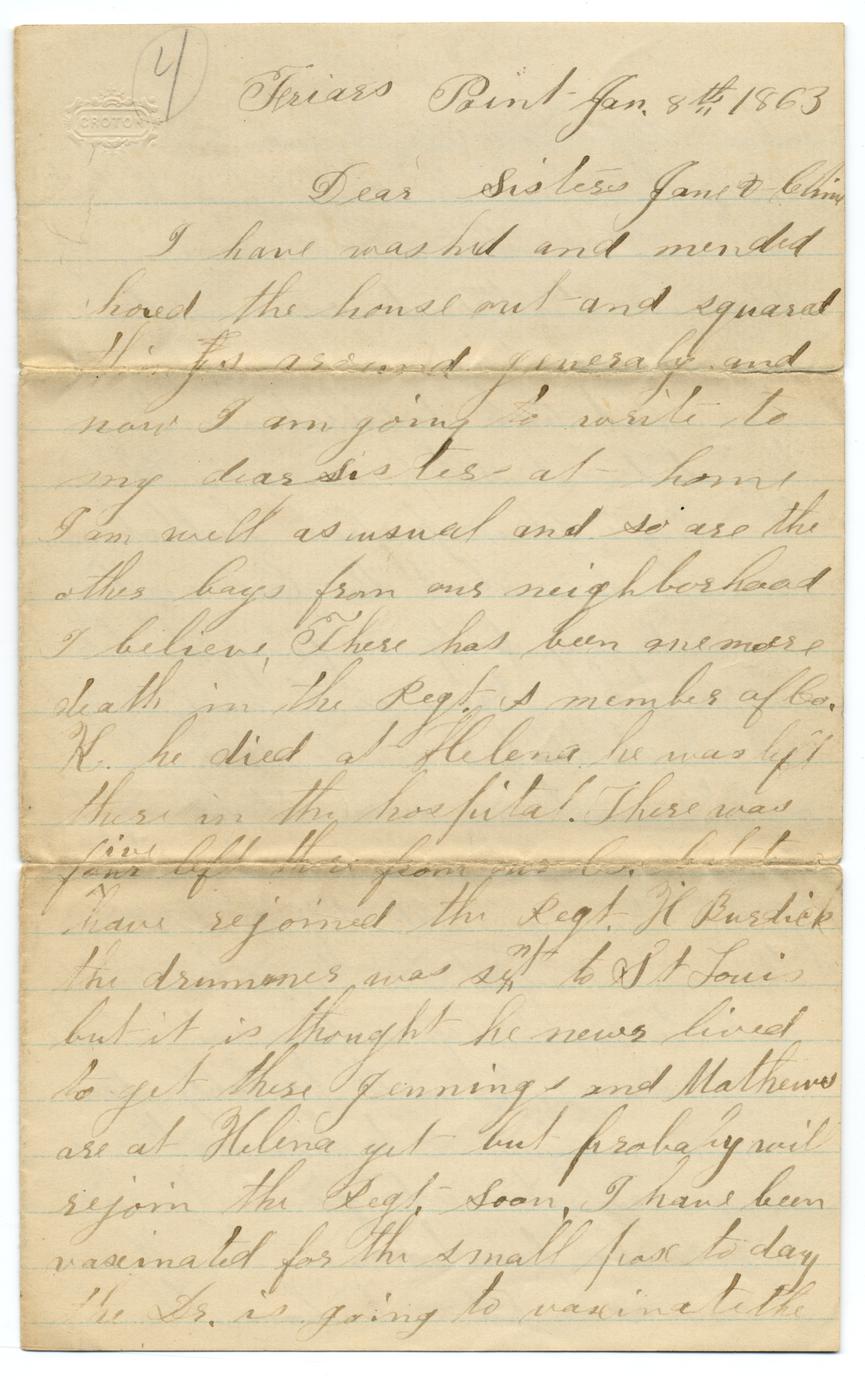 4
CROTON
Friars Point Jan. 8th 1863
Dear Sisters Jane &
I have washed and mended
hoed the house out and squared
things around generaly and
now I am going to write to
my dear sisters at home
I am well as usual and so are the
other boys from our neighborhood
I believe, There has been one more
death in the Regt. a member of Co.
K. he died at Helena he was left
there in the hospital. There was
five left there from our Co.
have rejoined the Regt. H Burdick
the drummer was sent to St Louis
but it is thought he never lived
to get there Jennings and Mathews
are at Helena yet but probabyy will
rejoin the Regt. soon, I have been
vaxinated for the small pox to day
the Dr. is going to vaxinate the